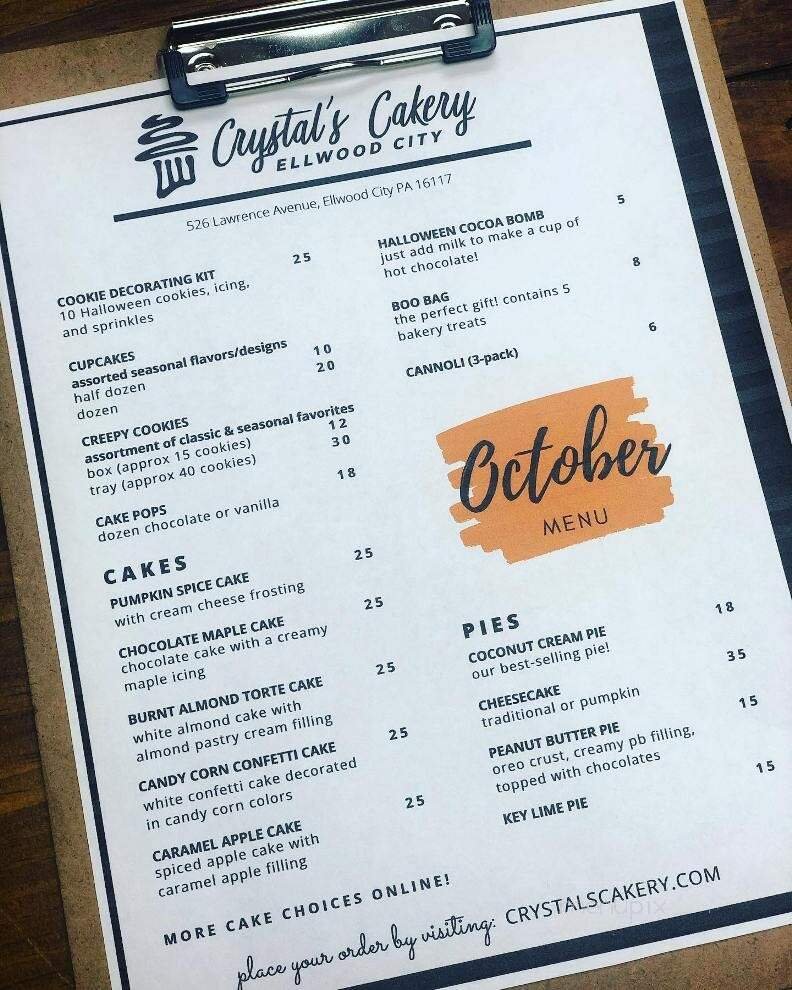 Crystal's Cakery
ELLWOOD CITY
526 Lawrence Avenue, Ellwood City PA 16117
COOKIE DECORATING KIT 25
10 Halloween cookies, icing,
and sprinkles
CUPCAKES
assorted seasonal flavors/designs
half dozen 10
dozen 20
CREEPY COOKIES
assortment of classic & seasonal favorites
box (approx 15 cookies) 12
tray (approx 40 cookies) 30
CAKE POPS 18
dozen chocolate or vanilla
CAKES
PUMPKIN SPICE CAKE 25
with cream cheese frosting
CHOCOLATE MAPLE CAKE 25
chocolate cake with a creamy
maple icing
BURNT ALMOND TORTE CAKE 25
white almond cake with
almond pastry cream filling
CANDY CORN CONFETTI CAKE 25
white confetti cake decorated
in candy corn colors
CARAMEL APPLE CAKE 25
spiced apple cake with
caramel apple filling
HALLOWEEN COCOA BOMB 5
just add milk to make a cup of
hot chocolate!
BOO BAG 8
the perfect gift! contains 5
bakery treats
CANNOLI (3-pack) 6
October
MENU
PIES
COCONUT CREAM PIE 18
our best-selling pie!
CHEESECAKE 35
traditional or pumpkin
PEANUT BUTTER PIE 15
oreo crust, creamy pb filling,
topped with chocolates
KEY LIME PIE 15
MORE CAKE CHOICES ONLINE!
place your order by visiting: CRYSTALSCAKERY.COM